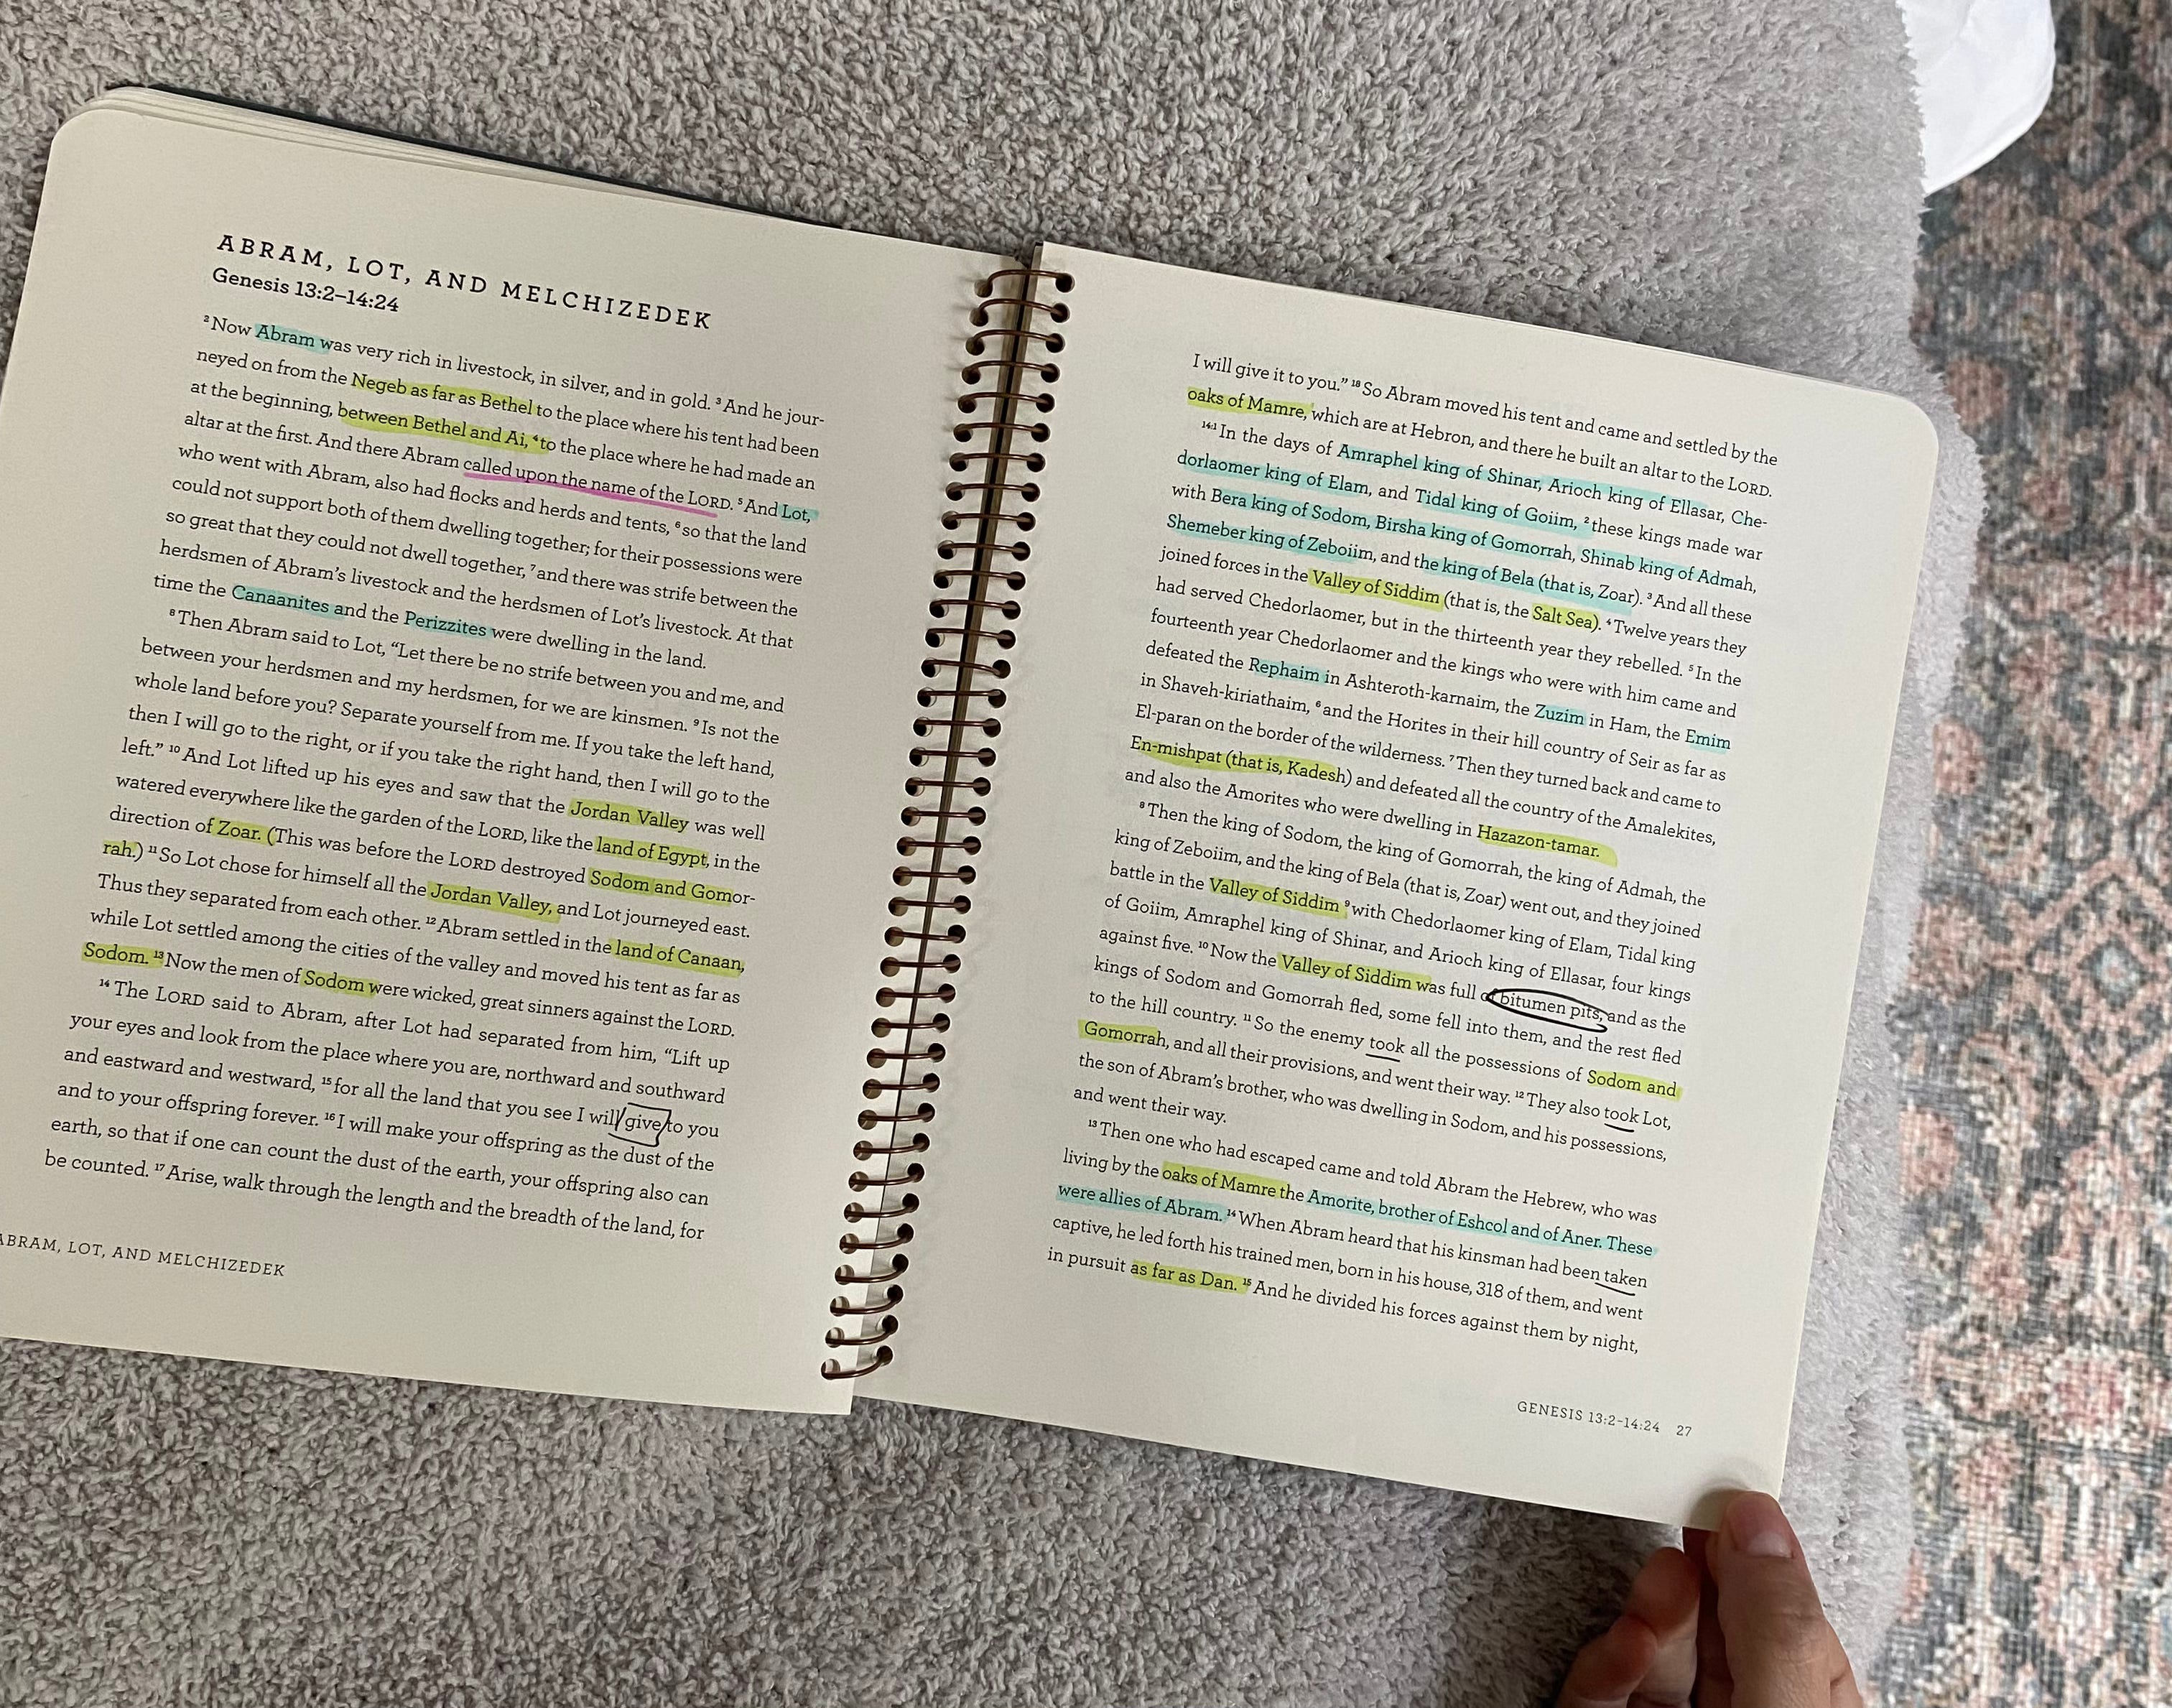 ABRAM, LOT, AND MELCHIZEDEK
Genesis 13:2–14:24
² Now Abram was very rich in livestock, in silver, and in gold. ³ And he jour-
neyed on from the Negeb as far as Bethel to the place where his tent had been
at the beginning, between Bethel and Ai, ⁴ to the place where he had made an
altar at the first. And there Abram called upon the name of the LORD. ⁵ And Lot,
who went with Abram, also had flocks and herds and tents, ⁶ so that the land
could not support both of them dwelling together; for their possessions were
so great that they could not dwell together, ⁷ and there was strife between the
herdsmen of Abram's livestock and the herdsmen of Lot's livestock. At that
time the Canaanites and the Perizzites were dwelling in the land.
⁸ Then Abram said to Lot, “Let there be no strife between you and me, and
between your herdsmen and my herdsmen, for we are kinsmen. ⁹ Is not the
whole land before you? Separate yourself from me. If you take the left hand,
then I will go to the right, or if you take the right hand, then I will go to the
left.” ¹⁰ And Lot lifted up his eyes and saw that the Jordan Valley was well
watered everywhere like the garden of the LORD, like the land of Egypt, in the
direction of Zoar. (This was before the LORD destroyed Sodom and Gomor-
rah.) ¹¹ So Lot chose for himself all the Jordan Valley, and Lot journeyed east.
Thus they separated from each other. ¹² Abram settled in the land of Canaan,
while Lot settled among the cities of the valley and moved his tent as far as
Sodom. ¹³ Now the men of Sodom were wicked, great sinners against the LORD.
¹⁴ The LORD said to Abram, after Lot had separated from him, “Lift up
your eyes and look from the place where you are, northward and southward
and eastward and westward, ¹⁵ for all the land that you see I will give to you
and to your offspring forever. ¹⁶ I will make your offspring as the dust of the
earth, so that if one can count the dust of the earth, your offspring also can
be counted. ¹⁷ Arise, walk through the length and the breadth of the land, for
ABRAM, LOT, AND MELCHIZEDEK
I will give it to you.” ¹⁸ So Abram moved his tent and came and settled by the
oaks of Mamre, which are at Hebron, and there he built an altar to the LORD.
¹⁴:¹ In the days of Amraphel king of Shinar, Arioch king of Ellasar, Che-
dorlaomer king of Elam, and Tidal king of Goiim, ² these kings made war
with Bera king of Sodom, Birsha king of Gomorrah, Shinab king of Admah,
Shemeber king of Zeboiim, and the king of Bela (that is, Zoar). ³ And all these
joined forces in the Valley of Siddim (that is, the Salt Sea). ⁴ Twelve years they
had served Chedorlaomer, but in the thirteenth year they rebelled. ⁵ In the
fourteenth year Chedorlaomer and the kings who were with him came and
defeated the Rephaim in Ashteroth-karnaim, the Zuzim in Ham, the Emim
in Shaveh-kiriathaim, ⁶ and the Horites in their hill country of Seir as far as
El-paran on the border of the wilderness. ⁷ Then they turned back and came to
En-mishpat (that is, Kadesh) and defeated all the country of the Amalekites,
and also the Amorites who were dwelling in Hazazon-tamar.
⁸ Then the king of Sodom, the king of Gomorrah, the king of Admah, the
king of Zeboiim, and the king of Bela (that is, Zoar) went out, and they joined
battle in the Valley of Siddim ⁹ with Chedorlaomer king of Elam, Tidal king
of Goiim, Amraphel king of Shinar, and Arioch king of Ellasar, four kings
against five. ¹⁰ Now the Valley of Siddim was full of bitumen pits, and as the
kings of Sodom and Gomorrah fled, some fell into them, and the rest fled
to the hill country. ¹¹ So the enemy took all the possessions of Sodom and
Gomorrah, and all their provisions, and went their way. ¹² They also took Lot,
the son of Abram's brother, who was dwelling in Sodom, and his possessions,
and went their way.
¹³ Then one who had escaped came and told Abram the Hebrew, who was
living by the oaks of Mamre the Amorite, brother of Eshcol and of Aner. These
were allies of Abram. ¹⁴ When Abram heard that his kinsman had been taken
captive, he led forth his trained men, born in his house, 318 of them, and went
in pursuit as far as Dan. ¹⁵ And he divided his forces against them by night,
GENESIS 13:2–14:24 27